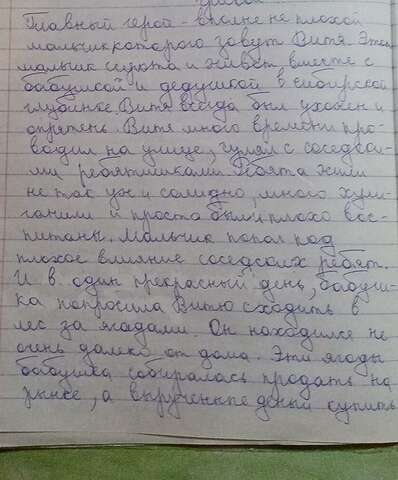 Главный герой - вполне не плохой
мальчик которого зовут Витя. Этот
мальчик сирота и живёт вместе с
бабушкой и дедушкой в сибирской
глубинке. Витя всегда был ухожен и
опрятен. Витя много времени про-
водил на улице, гулял с соседски-
ми ребятишками. Ребята жили
не так уж и солидно, много хули-
ганили и проста были плохо вос-
питаны. Мальчик попал под
плохое влияние соседских ребят.
И в один прекрасный день, бабуш-
ка попросила Витю сходить в
лес за ягодами. Он находился не
очень далеко от дома. Эти ягоды
бабушка собиралась продать на
рынке, а вырученные деньги купить